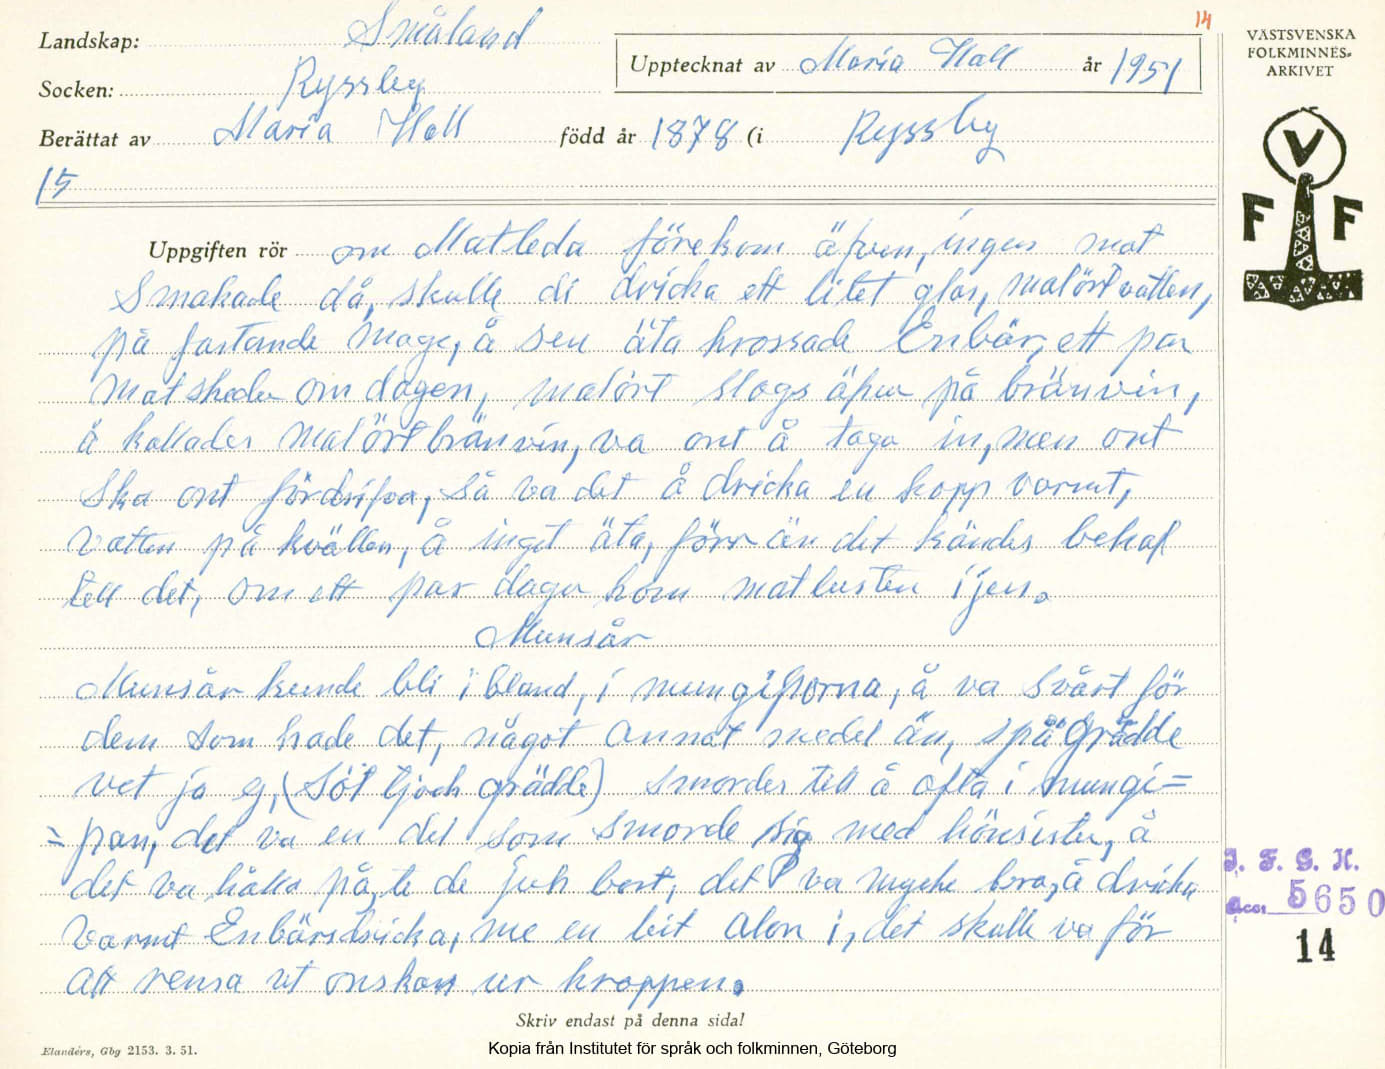 14
Landskap: Småland
Socken: Ryssby
Upptecknat av Maria Hall år 1951
Berättat av Maria Hall född år 1878 (i Ryssby
15
VÄSTSVENSKA
FOLKMINNES-
ARKIVET
V
F F
Uppgiften rör om Matleda förekom äfven, ingen mat
Smakade då, skulle di dricka ett litet glas, malört vatten,
på fastande mage, å sen äta krossade Enbär, ett par
matskedar om dagen, malört slogs äfven på bränvin,
å kallades Malört bränvin, va ont å taga in, men ont
ska ont fördrifva, så va det å dricka en kopp varmt,
vatten på kvällen, å inget äta, förr än det kändes behof
till det, om ett par dagar kom matlusten ijen.
Munsår
Munsår kunde bli ibland, i mungiporna, å va svårt för
dem som hade det, något annat medel än, spä Grädde
vet ja ej, (söt tjock grädde) smordes till å ofta i mungi=
=pan, det va en del som smorde sig med hönsister, å
det va hålla på, te de jeck bort, det va mycke bra, å dricka
varmt Enbärsdricka, me en bit alon i, det skulle va för
att rensa ut onskan ur kroppen.
J. F. G. H.
Acc. 5650
14
Skriv endast på denna sida!
Elanders, Gbg 2153. 3. 51.
Kopia från Institutet för språk och folkminnen, Göteborg